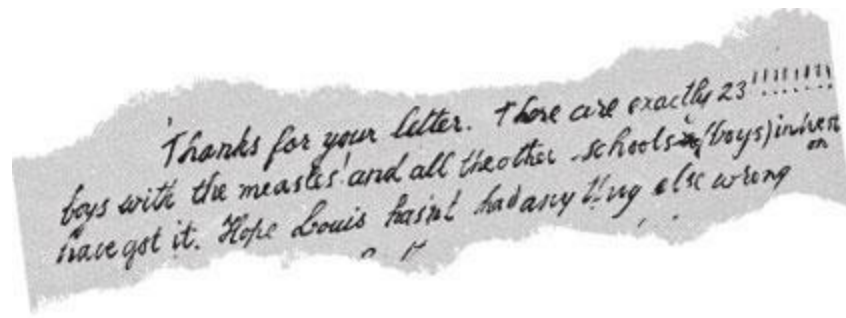 Thanks for your letter. There are exactly 23!!!!!!!!
boys with the measles! and all the other schools (boys) in Weston
have got it. Hope Louis hasn't had any thing else wrong